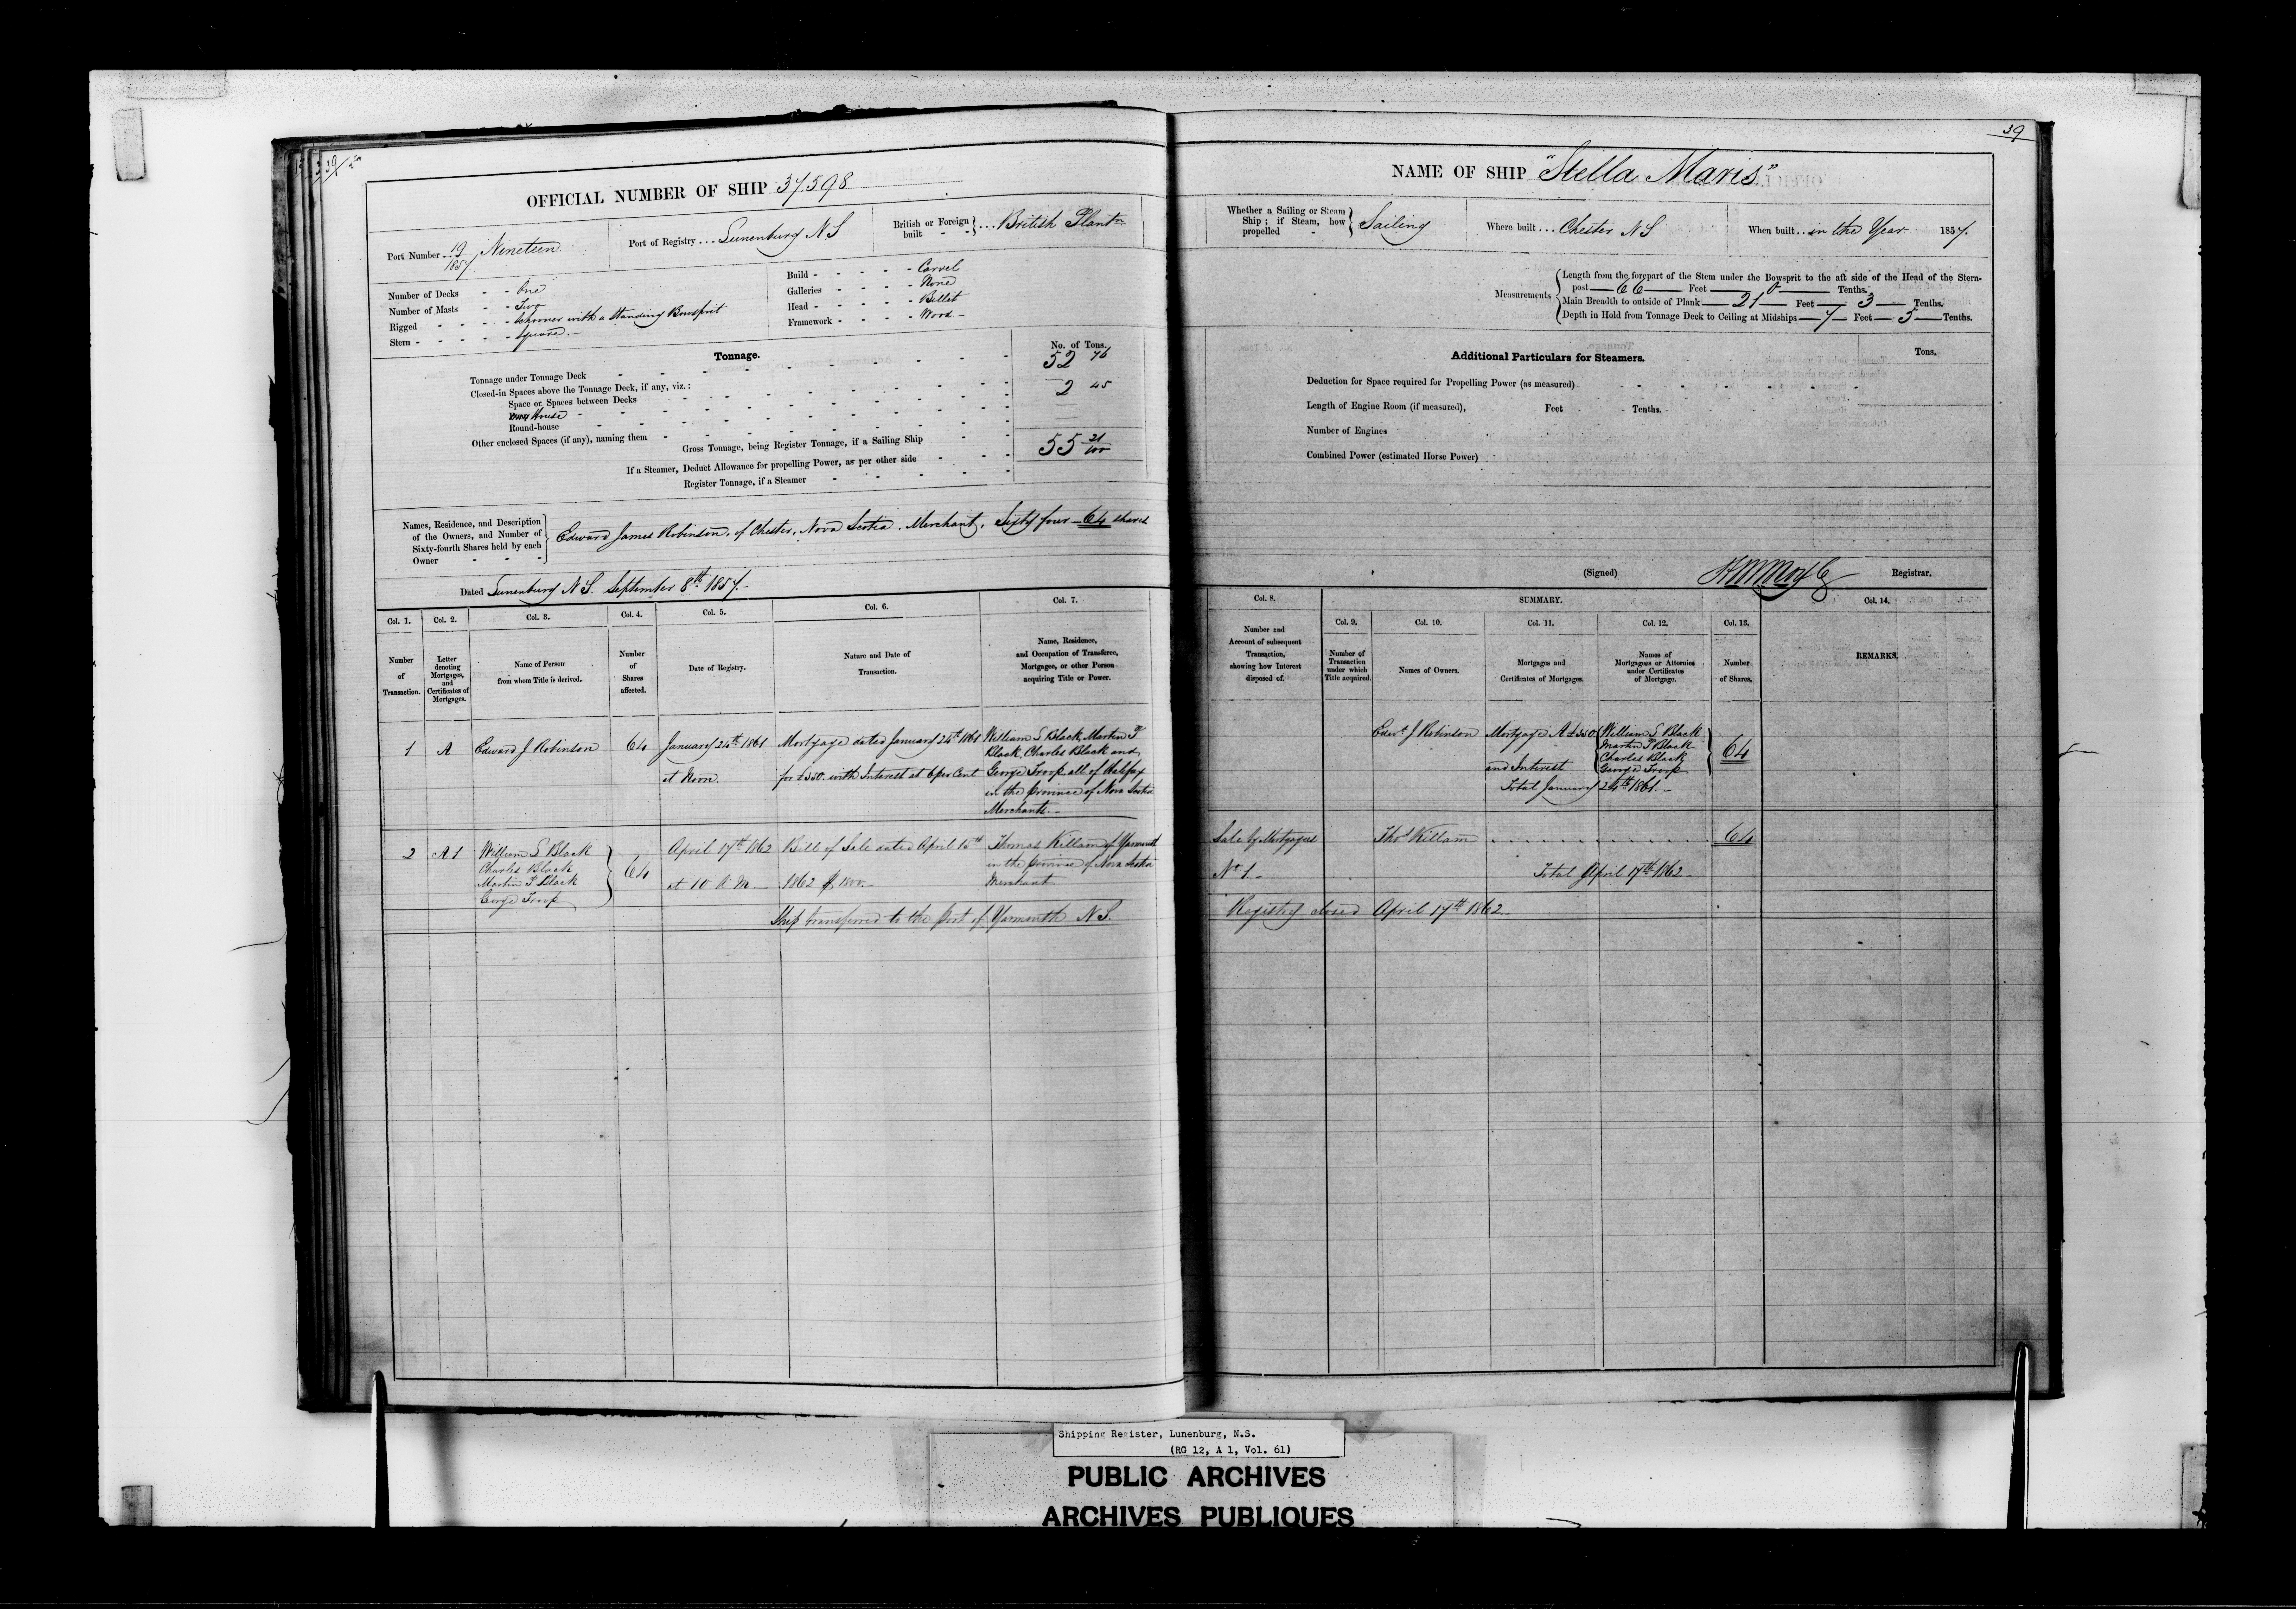 39
OFFICIAL NUMBER OF SHIP 37.598
Port Number 19/1857. Nineteen
Port of Registry ... Lunenburg N S
British or Foreign built ... British Plantn
Number of Decks - - One
Number of Masts - - Two
Rigged - - - - Schooner with a standing Bowsprit
Stern - - - - - Square. -
Build - - - - - Carvel
Galleries - - - - None
Head - - - - - Billet
Framework - - - - Wood -
Tonnage.
No. of Tons.
Tonnage under Tonnage Deck 52 76
Closed-in Spaces above the Tonnage Deck, if any, viz.:
Space or Spaces between Decks 2 45
House
Round-house
Other enclosed Spaces (if any), naming them
Gross Tonnage, being Register Tonnage, if a Sailing Ship 55 21/100
If a Steamer, Deduct Allowance for propelling Power, as per other side
Register Tonnage, if a Steamer
Names, Residence, and Description of the Owners, and Number of Sixty-fourth Shares held by each Owner
Edward James Robinson, of Chester, Nova Scotia, Merchant, Sixty four - 64 shares
Dated Lunenburg N S. September 8th 1857. -
Col. 1. Col. 2. Col. 3. Col. 4. Col. 5. Col. 6. Col. 7.
Number of Transaction.
Letter denoting Mortgages, and Certificates of Mortgages.
Name of Person from whom Title is derived.
Number of Shares affected.
Date of Registry.
Nature and Date of Transaction.
Name, Residence, and Occupation of Transferee, Mortgagee, or other Person acquiring Title or Power.
1 A Edward J Robinson 64
January 24th 1861
at Noon
Mortgage dated January 24th 1861
for £350. with Interest at 6 per Cent
William S Black, Martin P
Black, Charles Black and
George Troop all of Halifax
in the Province of Nova Scotia
Merchants. -
2 A 1
William S Black
Charles Black
Martin P Black
George Troop
64
April 17th 1862
at 10 A M
Bill of Sale dated April 15th
1862
Thomas Killam of Yarmouth
in the Province of Nova Scotia
Merchant
Ship transferred to the Port of Yarmouth N S.
39
NAME OF SHIP "Stella Maris"
Whether a Sailing or Steam Ship; if Steam, how propelled - Sailing
Where built ... Chester N S
When built ... in the Year 1857.
Measurements
Length from the forepart of the Stem under the Bowsprit to the aft side of the Head of the Stern-
post — 66 — Feet — 0 — Tenths.
Main Breadth to outside of Plank — 21 — Feet — 3 — Tenths.
Depth in Hold from Tonnage Deck to Ceiling at Midships — 7 — Feet — 5 — Tenths.
Additional Particulars for Steamers.
Tons.
Deduction for Space required for Propelling Power (as measured)
Length of Engine Room (if measured), Feet Tenths.
Number of Engines
Combined Power (estimated Horse Power)
(Signed) Registrar.
Col. 8. SUMMARY. Col. 14.
Col. 9. Col. 10. Col. 11. Col. 12. Col. 13.
Number and Account of subsequent Transaction, showing how Interest disposed of.
Number of Transaction under which Title acquired.
Names of Owners.
Mortgages and Certificates of Mortgages.
Names of Mortgagees or Attornies under Certificates of Mortgage.
Number of Shares.
REMARKS.
Edwd J Robinson
Mortgage A £350.
and Interest
William S Black
Martin P Black
Charles Black
George Troop
64
Total January 24th 1861. -
Sale by Mortgagees
No 1 -
Thos Killam
64
Total April 17th 1862 -
Registry closed April 17th 1862
Shipping Register, Lunenburg, N.S.
(RG 12, A 1, Vol. 61)
PUBLIC ARCHIVES
ARCHIVES PUBLIQUES